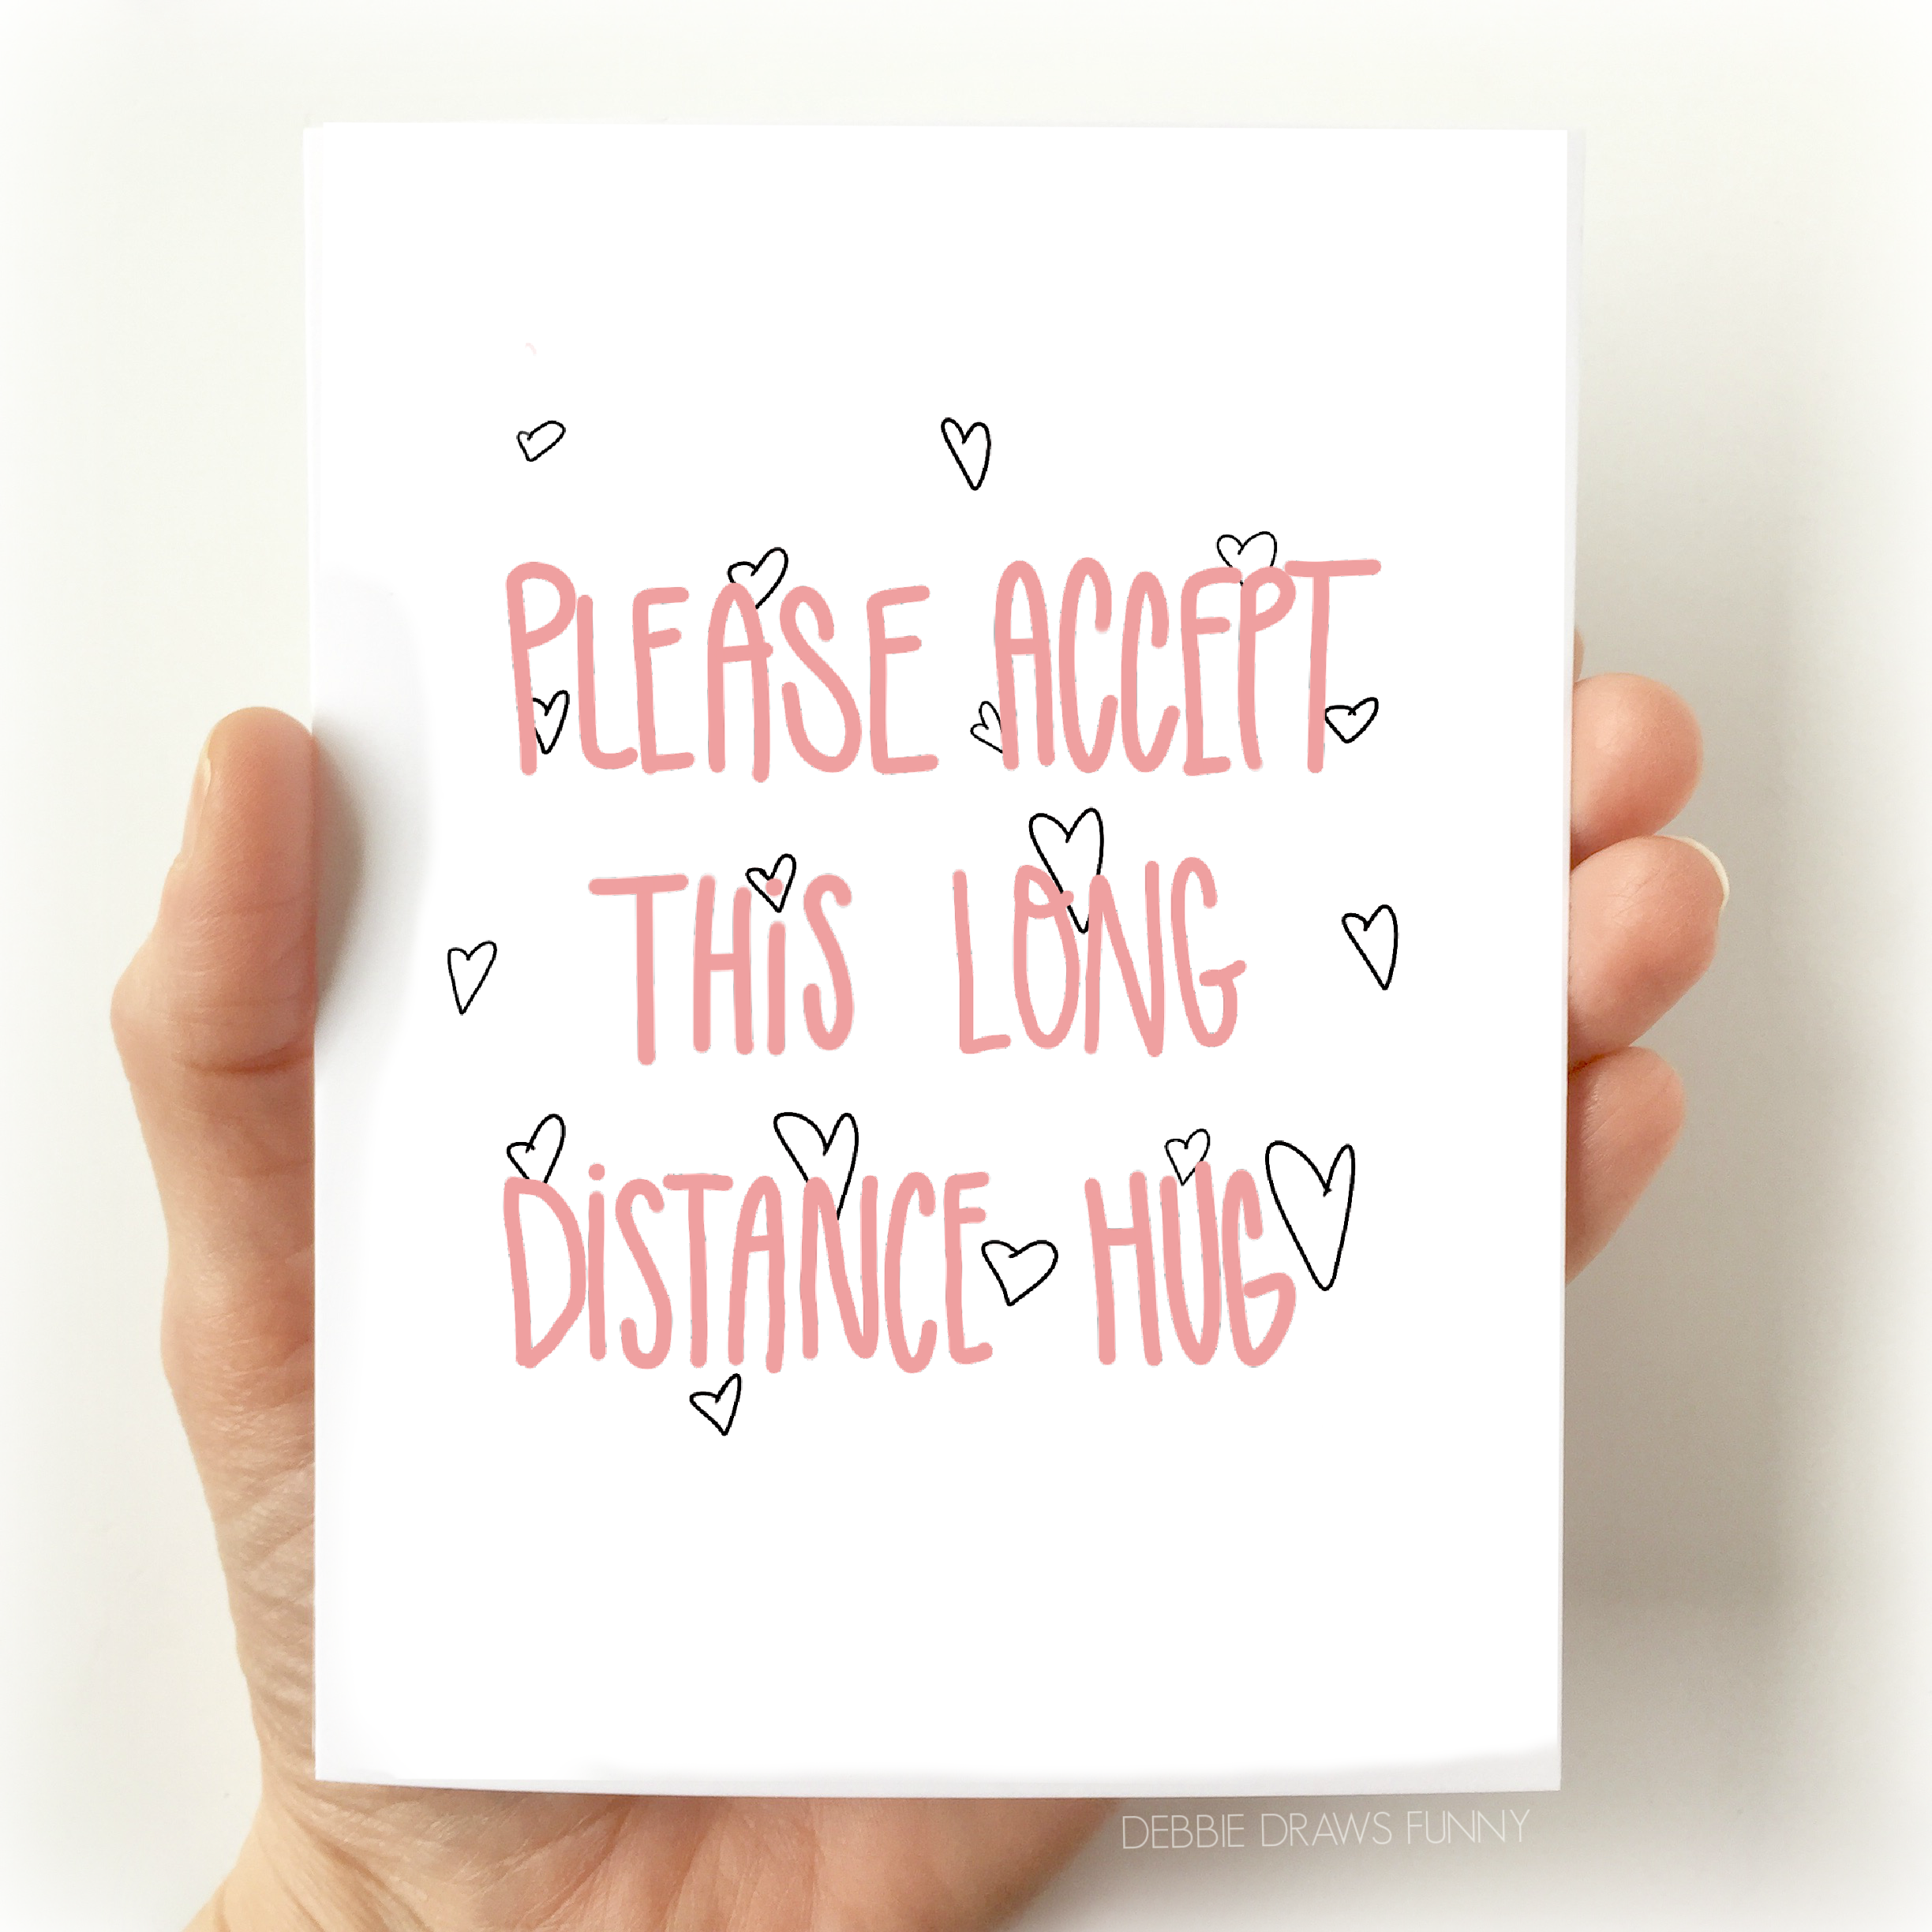 PLEASE ACCEPT
THiS LONG
DiSTANCE HUG
DEBBIE DRAWS FUNNY